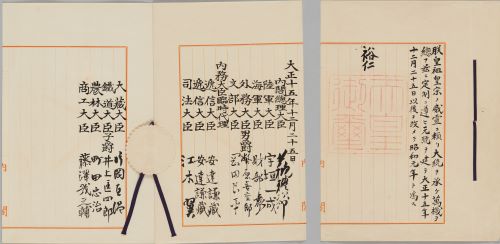 朕皇祖皇宗ノ威靈ニ賴リ大統ヲ承ケ萬機ヲ
總フ茲ニ定制ニ遵ヒ元號ヲ建テ大正十五年
十二月二十五日以後ヲ改メテ昭和元年ト爲ス
裕仁
天皇御璽
大正十五年十二月二十五日
内閣總理大臣 若槻禮次郎
陸軍大臣 宇垣一成
海軍大臣 財部彪
外務大臣男爵 幣原喜重郎
文部大臣 岡田良平
内務大臣臨時代理
遞信大臣 安達謙藏
遞信大臣 安達謙藏
司法大臣 江木翼
大藏大臣 片岡直温
鐵道大臣子爵 井上匡四郎
農林大臣 町田忠治
商工大臣 藤澤幾之輔
内閣
内閣